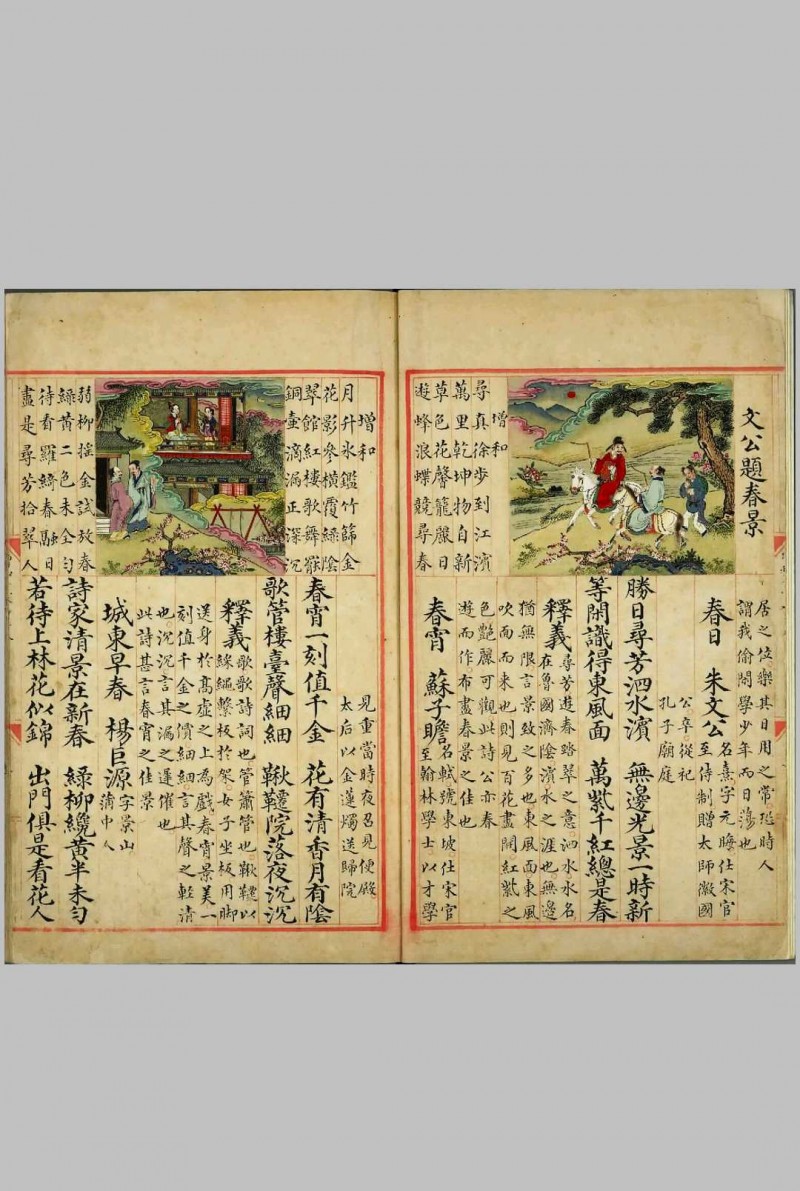 文公題春景
增和
尋真徐步到江濱
萬里乾坤物自新
草色花馨籠麗日
遊蜂浪蝶競尋春
居之位樂其日用之常
謂我偷閒學少年而日蕩也
春日 朱文公
名熹字元晦仕宋官
至侍制贈太師徽國
公卒從祀
孔子廟庭
勝日尋芳泗水濱 無邊光景一時新
等閑識得東風面 萬紫千紅總是春
釋義
尋芳遊春踏翠之意泗水水名
在魯國濟陰濱水之涯也無邊
猶無限言景致之多也東風面東風
吹面而來也則見百花盡開紅紫之
色艷麗可觀此詩公亦春
遊而作布盡春景之佳也
春宵 蘇子瞻
名軾號東坡仕宋官
至翰林學士以才學
見重當時夜召見便殿
太后以金蓮燭送歸院
增和
月升氷鑑竹篩金
花影參橫霞綠陰
翠館紅樓歌舞散
銅壺滴漏正深沉
春宵一刻值千金 花有清香月有陰
歌管樓臺聲細細 鞦韆院落夜沉沉
釋義
歌歌詩詞也管簫管也鞦韆以
綵繩繫板於架女子坐板用脚
送身於高虛之上為戲春宵景美一
刻值千金之價細細言其聲之輕清
也沉沉言其漏之遲催也
此詩甚言春宵之佳景
城東早春 楊巨源
字景山
蒲中人
詩家清景在新春 綠柳纔黃半未勻
若待上林花似錦 出門俱是看花人
弱柳搖金試放春
綠黃二色未全勻
待看羅綺春融日
盡是尋芳拾翠人